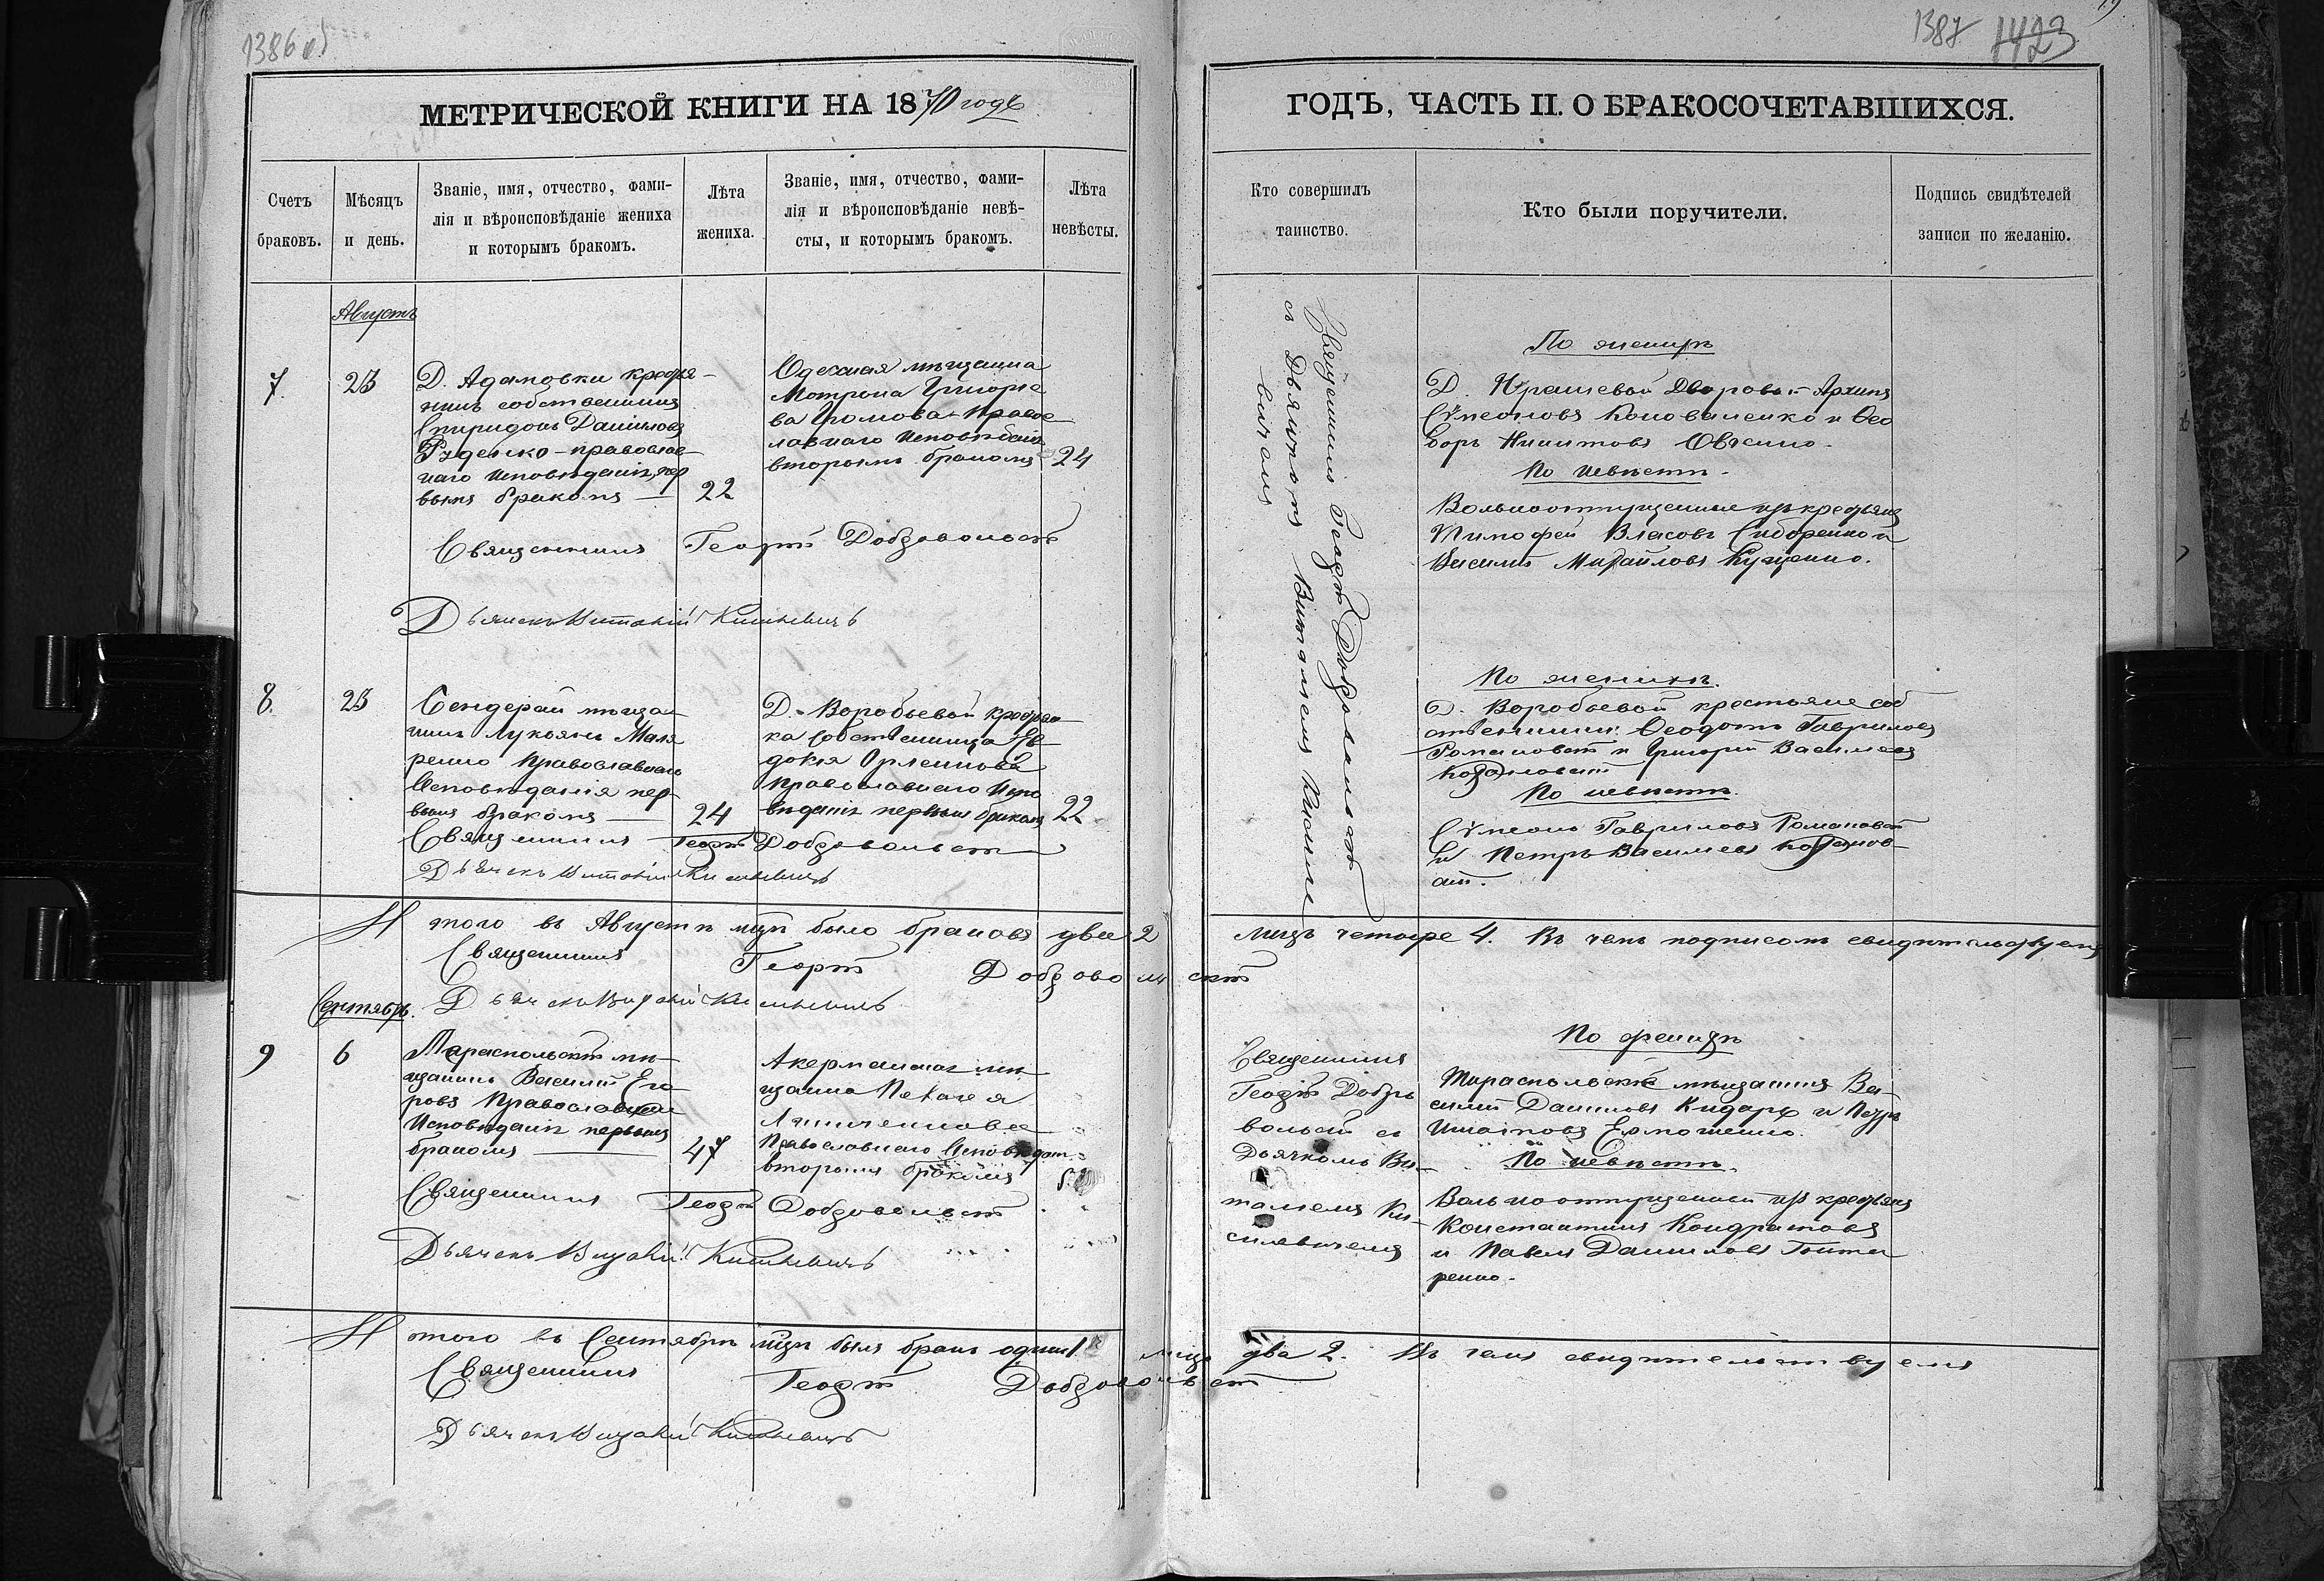 1386 об
1387 1423
МЕТРИЧЕСКОЙ КНИГИ НА 1870 годъ
Счетъ
браковъ.
Мѣсяцъ
и день.
Званіе, имя, отчество, фами-
лія и вѣроисповѣданіе жениха
и которымъ бракомъ.
Лѣта
жениха.
Званіе, имя, отчество, фами-
лія и вѣроисповѣданіе невѣ-
сты, и которымъ бракомъ.
Лѣта
невѣсты.
Августъ
7.
23
Д. Адамовки крестья-
нинъ собственникъ
Спиридонъ Даниловъ
Руденко - православ-
наго исповѣданія, пер
вымъ бракомъ —
22
Одесская мѣщанка
Мотрона Григорье
ва Громова - Право
славнаго Исповѣданія
вторымъ бракомъ
24
Священникъ Георгій Добровольскій
Дьячекъ Виталій Кисилевичъ
8.
23
Бендерскій мѣща-
нинъ Лукьянъ Маля
ренко Православнаго
Исповѣданія пер-
вымъ бракомъ —
24
Д. Воробьевой крестьян
ка собственница Ев
докія Орленкова
Православнаго Испо
вѣданія первымъ бракомъ
22
Священникъ Георгій Добровольскій
Дьячекъ Виталій Кисилевичъ
Итого въ Августѣ мцѣ было браковъ два 2
Священникъ Георгій Добровольскій
Дьячекъ Виталій Кисилевичъ
Сентябрь.
9
6
Тираспольскій мѣ-
щанинъ Василій Его
ровъ Православнаго
Исповѣданія первымъ
бракомъ —
47
Акерманская мѣ-
щанка Пелагея
Православнаго Исповѣдан.
вторымъ бракомъ
Священникъ Георгій Добровольскій
Дьячекъ Виталій Кисилевичъ
Итого въ Сентябрѣ мцѣ былъ бракъ одинъ 1.
Священникъ Георгій Добровольскій
Дьячекъ Виталій Кисилевичъ
ГОДЪ, ЧАСТЬ II. О БРАКОСОЧЕТАВШИХСЯ.
Кто совершилъ
таинство.
Кто были поручители.
Подпись свидѣтелей
записи по желанію.
Священникъ Георгій Добровольскій
съ Дьячкомъ Виталіемъ Кисиле
вичемъ
По женихѣ
Д. Дворовые Архипъ
Сѵмеоновъ Коноваленко и Ѳео
доръ Никитовъ Овсенко.
По невѣстѣ.
Вольноотпущенные изъ крестьянъ
Тимофей Власовъ Сидоренко и
Василій Михайловъ Куценко.
По женихѣ.
Д. Воробьевой крестьяне соб
ственники: Ѳеодотъ Гавриловъ
Романовскій и Григорій Васильевъ
Козановскій
По невѣстѣ.
Сѵмеонъ Гавриловъ Романовскій
и Петръ Васильевъ Козанов-
скій.
лицъ четыре 4. Въ чемъ подписомъ свидѣтельствуемъ
Священникъ
Георгій Добро
вольскій съ
Дьячкомъ Ви-
таліемъ Ки-
силевичемъ
По женихѣ
Тираспольскіе мѣщанинъ Ва-
силій Даниловъ Кидарь и Петръ
Игнатовъ Ермошенко.
По невѣстѣ.
Вольноотпущенный изъ крестьянъ
Константинъ Кондратовъ
и Павелъ Даниловъ Гонта
ренко.
лицъ два 2. Въ чемъ свидѣтельствуемъ